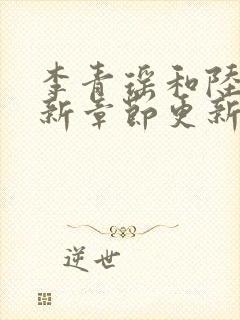 李青瑶和陸
新章節更新
逆世